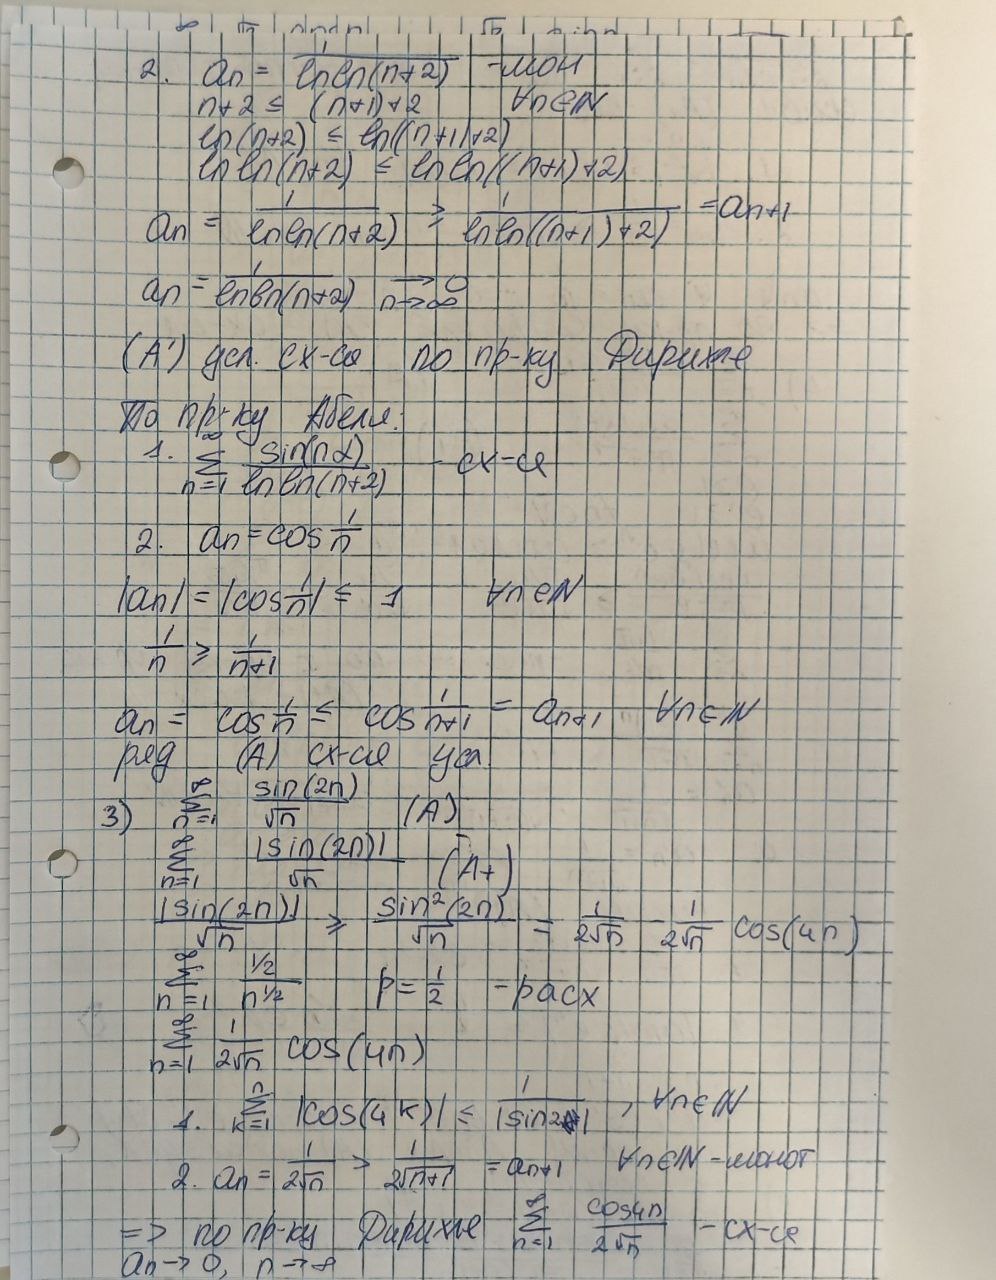 2. an = 1/(ln ln(n+2)) - мон
n+2 ≤ (n+1)+2 ∀n∈N
ln(n+2) ≤ ln((n+1)+2)
ln ln(n+2) ≤ ln ln((n+1)+2)
an = 1/(ln ln(n+2)) ≥ 1/(ln ln((n+1)+2)) = an+1
an = 1/(ln ln(n+2)) → 0 n→∞
(A') усл. сх-ся по пр-ку Дирихле
По пр-ку Абеля:
1. ∞ Σ n=1 sin(nα)/(ln ln(n+2)) - сх-ся
2. an = cos 1/n
|an| = |cos 1/n| ≤ 1 ∀n∈N
1/n ≥ 1/(n+1)
an = cos 1/n ≤ cos 1/(n+1) = an+1 ∀n∈N
ряд (A) сх-ся усл.
3) ∞ Σ n=1 sin(2n)/√n (A)
∞ Σ n=1 |sin(2n)|/√n (A+)
|sin(2n)|/√n ≥ sin²(2n)/√n = 1/(2√n) - 1/(2√n) cos(4n)
∞ Σ n=1 (1/2)/n^(1/2) p = 1/2 - расх
∞ Σ n=1 1/(2√n) cos(4n)
1. n Σ k=1 |cos(4k)| ≤ 1/|sin2|, ∀n∈N
2. an = 1/(2√n) > 1/(2√(n+1)) = an+1 ∀n∈N - монот
=> по пр-ку Дирихле ∞ Σ n=1 cos4n/(2√n) - сх-ся
an → 0, n → ∞